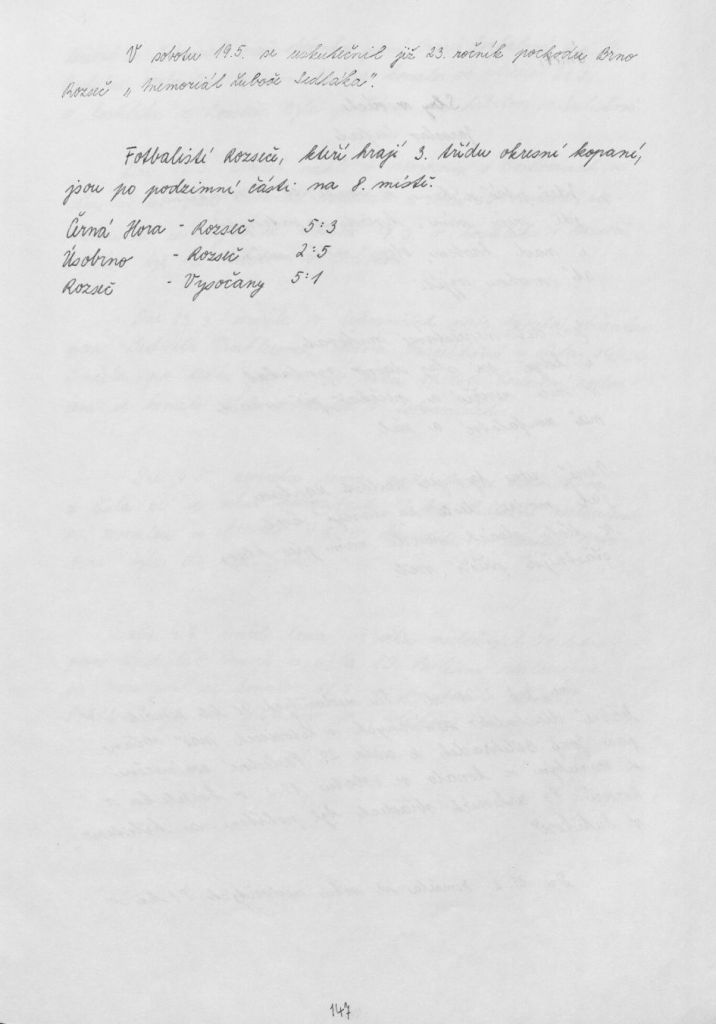 V sobotu 19.5. se uskutečnil již 23. ročník pochodu Brno
Rozseč „Memoriál Luboše Sedláka".
Fotbalisté Rozseče, kteří hrají 3. třídu okresní kopané,
jsou po podzimní části na 8. místě.
Černá Hora - Rozseč 5:3
Úsobrno - Rozseč 2:5
Rozseč - Vysočany 5:1
147